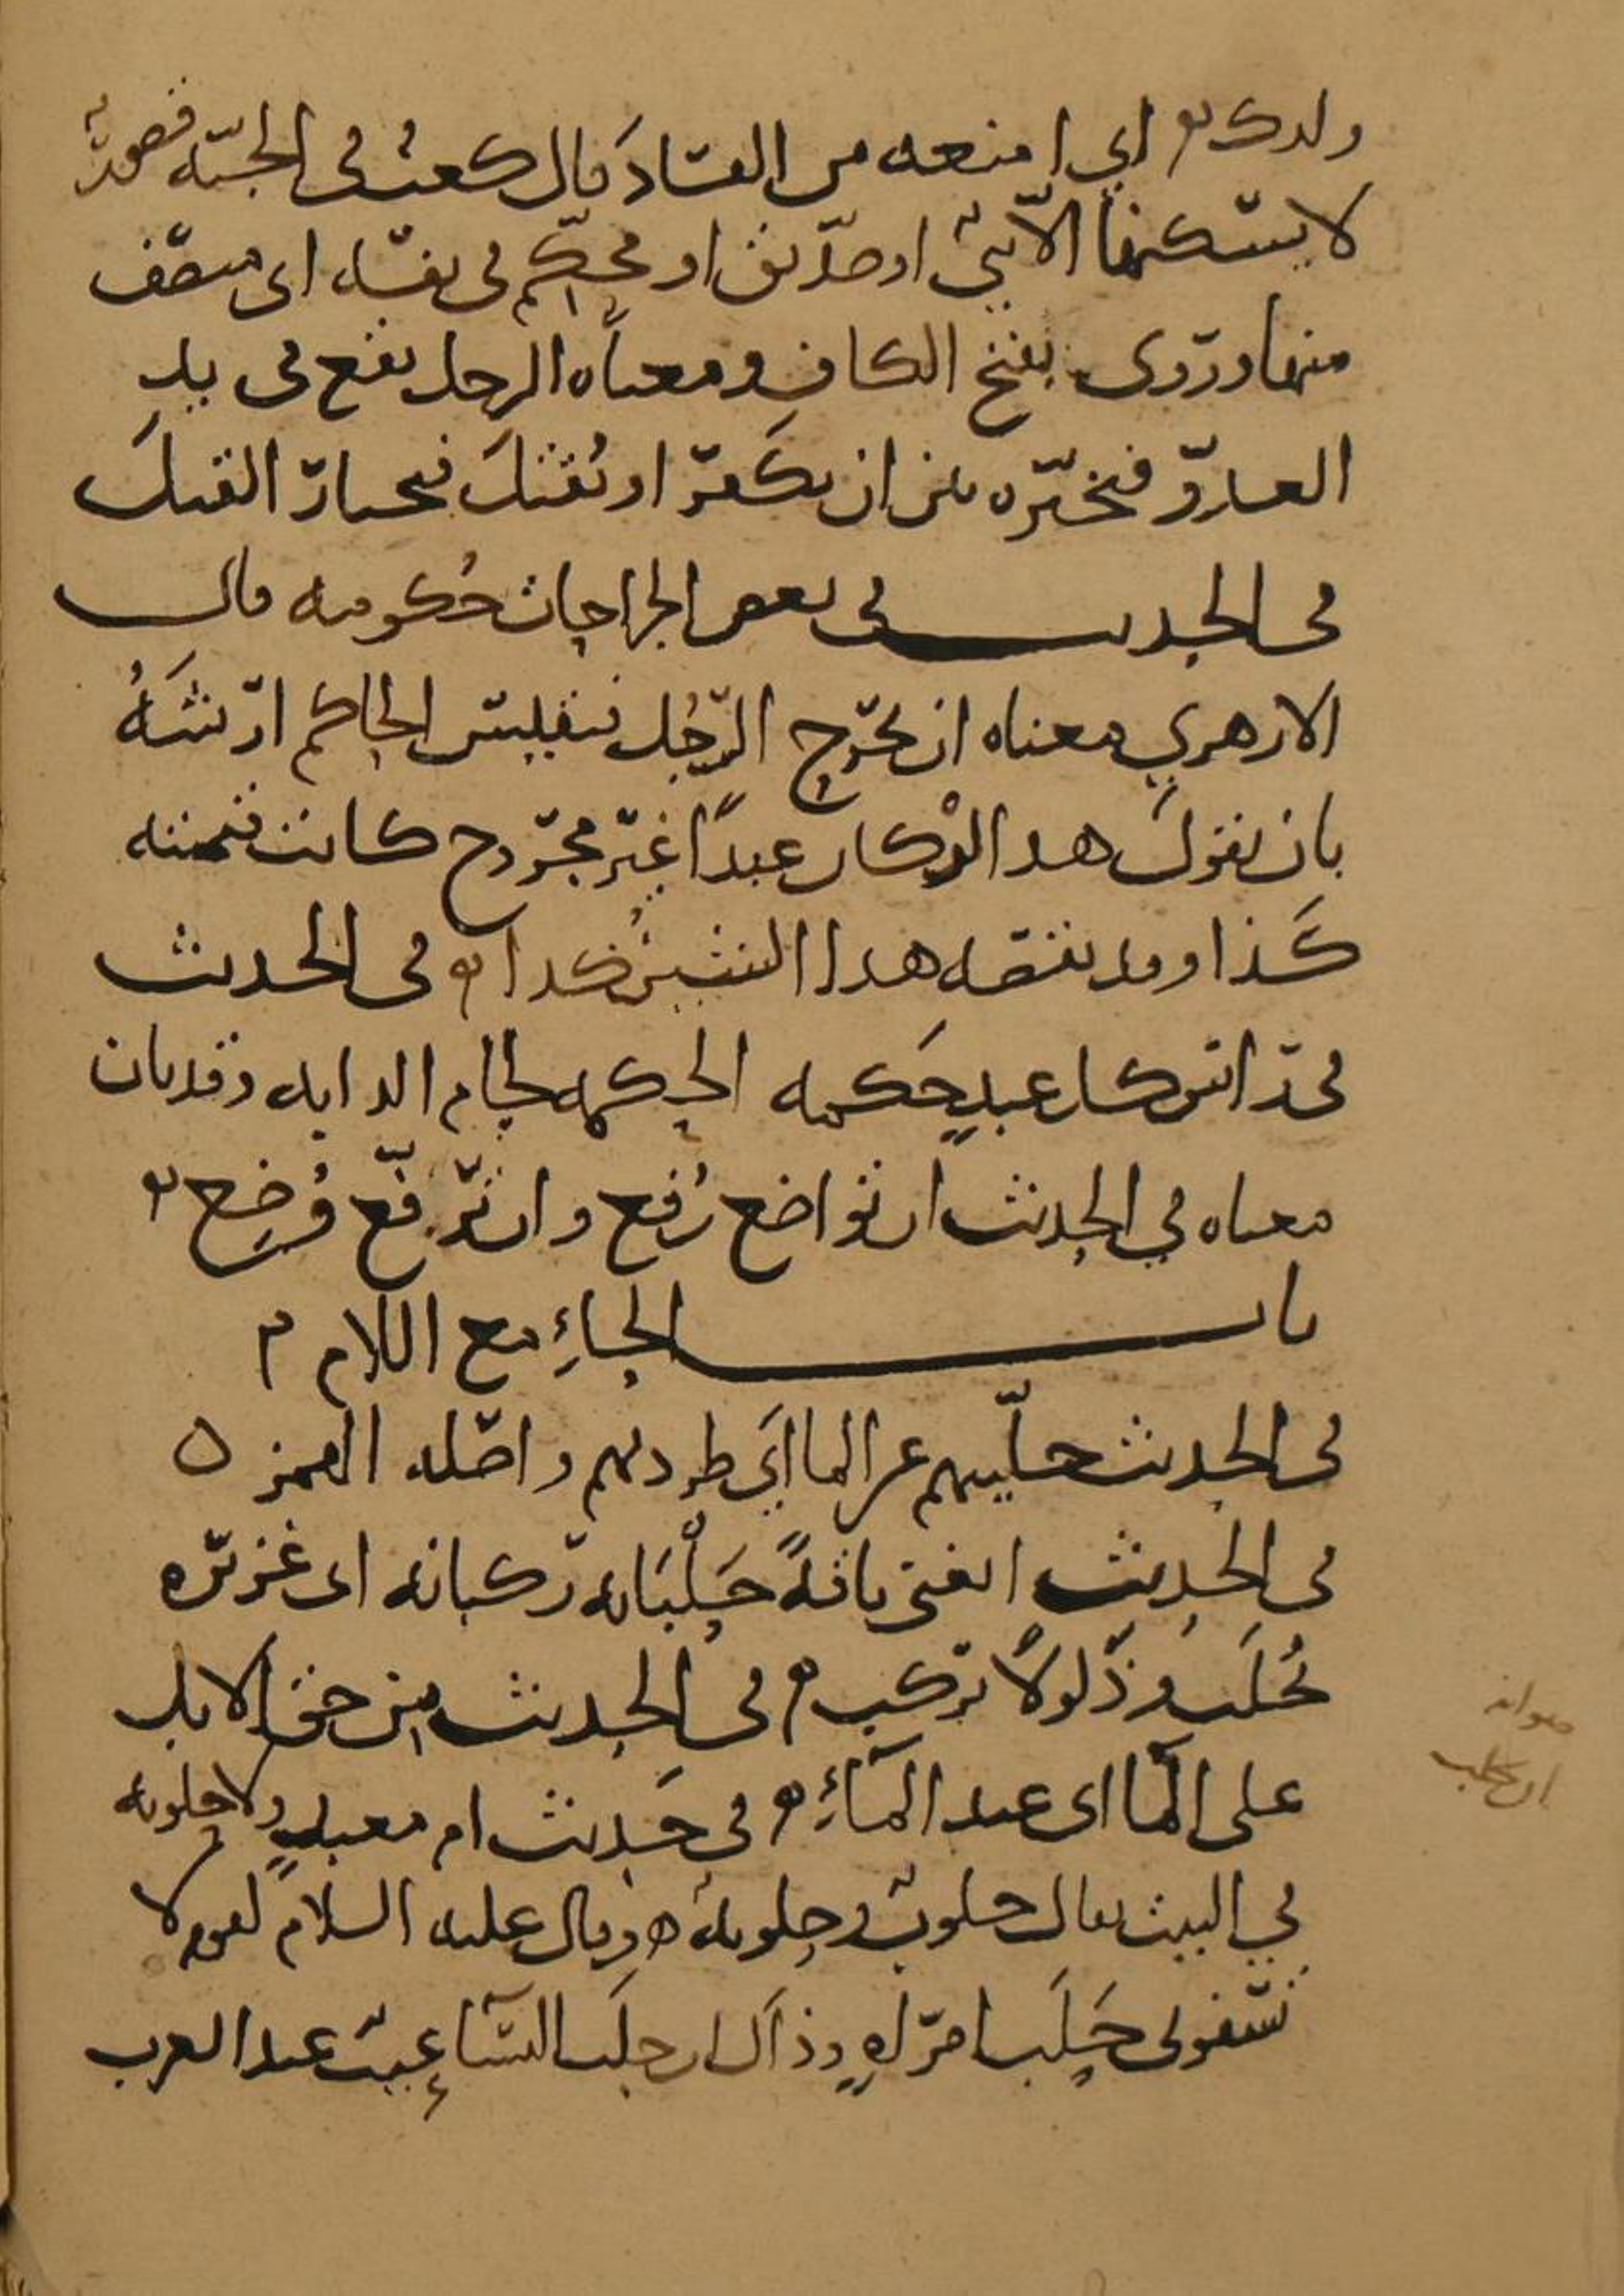 ولدك اي امنعه من الفساد قال كعب في الجنه قصور
لا يسكنها الا نبيّ او صدّيق او محكّم في نفسه اي منصف
منها وروى بفتح الكاف ومعناه الرجل يقع في يد
العدوّ فيخيّره بين ان يكفر او يُقتل فيختار القتل
في الحديث في بعض الجراحات حُكومه قال
الازهري معناه ان يجرح الرّجُل فيقيس الحاكم ارشَهُ
بان يقول هذا لوْ كان عبدًا غير مجروح كانت قيمته
كَذا وقد نقصه هذا الشين كذا في الحديث
في راس كل عبدٍ حَكمه الحكمه لجام الدابه وقد بان
معناه في الحديث ان تواضع رُفع وان ترفّع وُضِع
باب الحاءِ مع اللام
في الحديث حلّيهم عن الما اَي طردهم واصله الهمز ه
في الحديث ابغني ناقةً حَلْبَانه رَكبانه اي غزيره
تُحلَب وذَلولًا تركب في الحديث من حق الابل
على الما اي عند المآءِ في حَديث ام معبدٍ ولا حلوبه
في البيت يقال حلوب وحلوبه ه وقال عليه السلام لقوم لا
تسقوني حَلَب امرَاهٍ وذاك ان حلب النسآءِ عيب عند العرب
صوابه
ان تحلب